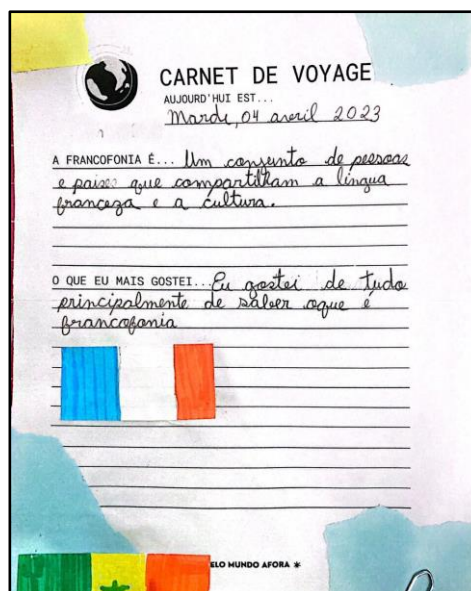 CARNET DE VOYAGE
AUJOURD'HUI EST...
Mardi, 04 avril 2023
A FRANCOFONIA É... Um conjunto de pessoas
e países que compartilham a língua
franceza e a cultura.
O QUE EU MAIS GOSTEI... Eu gostei de tudo
principalmente de saber oque é
francofonia
ELO MUNDO AFORA